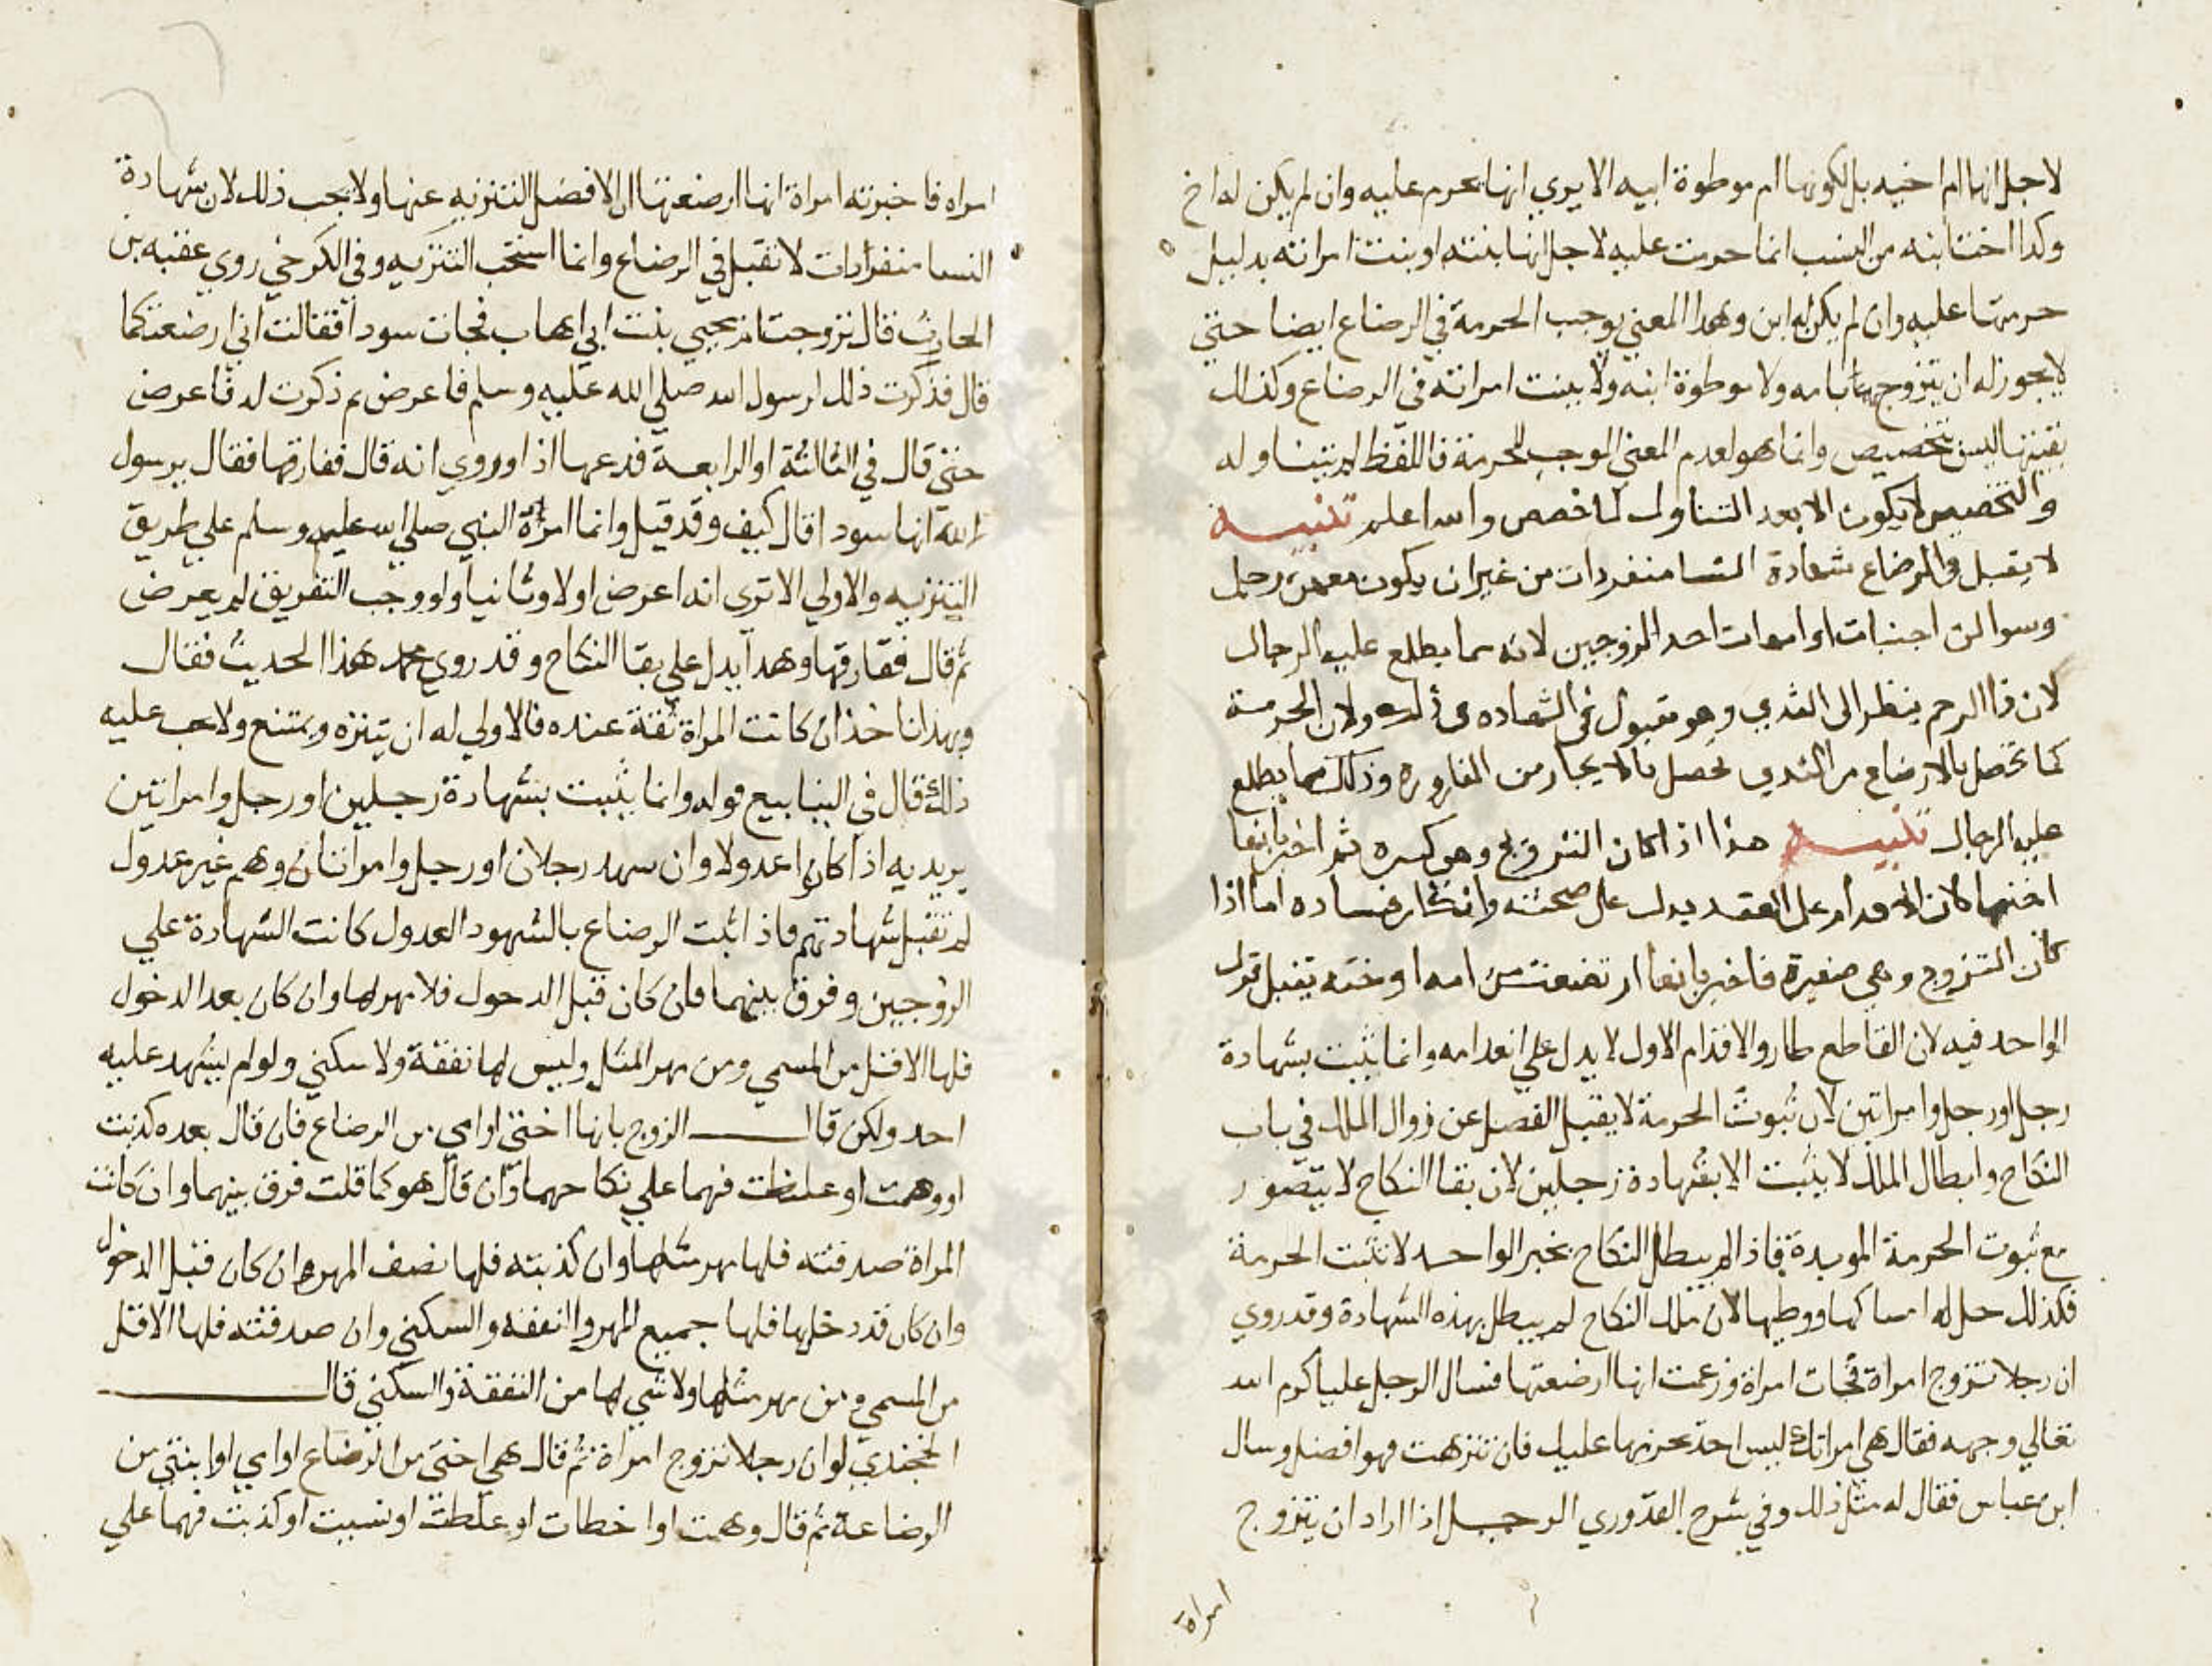 لاجل انها ام اخيه بل لكونها ام موطوة ابيه الا يري انها تحرم عليه وان لم يكن له اخ
وكذا اخت ابنه من النسب انما حرمت عليه لاجل انها بنته او بنت امراته بدليل
حرمتها عليه وان لم يكن له ابن وهذا المعني يوجب الحرمة في الرضاع ايضا حتي
لا يجوز له ان يتزوج بامه ولا موطوة ابنه ولا ببنت امراته في الرضاع وكذلك
بتخصيص وانما هو لعدم المعني الموجب للحرمة فاللفظ لم يتناوله
والتخصيص لا يكون الا بعد التناول لما خصص والله اعلم تنبيه
لا يقبل في الرضاع شهادة النسا منفردات من غير ان يكون معهن رجل
وسوا كن اجنبيات او امهات احد الزوجين لانه مما يطلع عليه الرجال
لان ذا الرحم ينظر الى الثدي وهو مقبول الشهاده في ذلك ولان الحرمة
كما تحصل بالارضاع من الثدي تحصل بالايجار من القاروره وذلك مما يطلع
عليه الرجال تنبيه هذا اذا كان التزويج وهي كبيره ثم اخبر بانها
اخته لان الاقدام على العقد يدل على صحته وانكار فساده اما اذا
كان التزوج وهي صغيرة فاخبر بانها ارتضعت من امه او اخته يقبل قول
الواحد فيه لان القاطع طار والاقدام الاول لا يدل علي انعدامه وانما يثبت بشهادة
رجل او رجل وامراتين لان ثبوت الحرمة لا يقبل الفصل عن زوال الملك في باب
النكاح وابطال الملك لا يثبت الا بشهادة رجلين لان بقا النكاح لا يتصور
مع ثبوت الحرمة الموبدة فاذا لم يبطل النكاح بخبر الواحد لا تثبت الحرمة
فكذلك حل له امساكها ووطيها لان ملك النكاح لم يبطل بهذه الشهادة وقد روي
ان رجلا تزوج امراة فجات امراة فزعمت انها ارضعتها فسال الرجل عليا كرم الله
تعالي وجهه فقال هي امراتك ليس احد يحرمها عليك فان تنزهت فهو افضل وسال
ابن عباس فقال له مثل ذلك وفي شرح القدوري الرجل اذا اراد ان يتزوج
امراة
امراه فاخبرته امراة انها ارضعتها ان الافضل التنزيه عنها ولا يجب ذلك لان شهادة
النسا منفرادات لا تقبل في الرضاع وانما استحب التنزيه وفي الكرخي روي عقبه بن
الحارث قال تزوجت ام يحيي بنت ابي اهاب فجات سودا فقالت اني ارضعتكما
قال فذكرت ذلك لرسول الله صلي الله عليه وسلم فاعرض ثم ذكرت له فاعرض
حتي قال في الثالثة او الرابعة فدعها اذا وروي انه قال ففارقها فقال يرسول
الله انها سودا قال كيف وقد قيل وانما امره النبي صلي الله عليه وسلم علي طريق
التنزيه والاولي الا تري انه اعرض اولا وثانيا ولو وجب التفريق لم يعرض
ثم قال ففارقها وهذا يدل علي بقا النكاح وقد روي محمد هذا الحديث فقال
وبهذا ناخذ ان كانت المراة ثقة عنده فالاولي له ان يتنزه ويمتنع ولا يجب عليه
ذلك قال في الينابيع قوله وانما يثبت بشهادة رجلين او رجل وامراتين
يريد به اذا كانوا عدولا وان شهد رجلان او رجل وامراتان وهم غير عدول
لم تقبل شهادتهم فاذا ثبت الرضاع بالشهود العدول كانت الشهادة علي
الزوجين وفرق بينهما فان كان قبل الدخول فلا مهر لها وان كان بعد الدخول
فلها الاقل من المسمي ومن مهر المثل وليس لها نفقة ولا سكني ولو لم يشهد عليه
احد ولكن قال الزوج بانها اختي او امي من الرضاع فان قال بعده كذبت
او وهمت او غلطت فهما علي نكاحهما وان قال هو كما قلت فرق بينهما وان كانت
المراة صدقته فلها مهر مثلها وان كذبته فلها نصف المهر ان كان قبل الدخول
وان كان قد دخل بها فلها جميع المهر والنفقه والسكني وان صدقته فلها الاقل
من المسمي ومن مهر مثلها ولا شي لها من النفقة والسكني قال
الخجندي لو ان رجلا تزوج امراة ثم قال هي اختي من الرضاع او امي او ابنتي من
الرضاعة ثم قال وهمت او اخطات او غلطت او نسيت او كذبت فهما علي